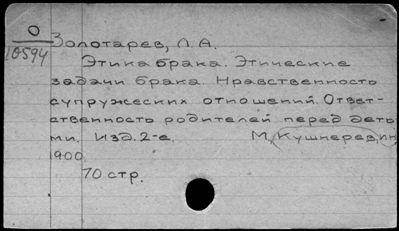 О
10594
Золотарев, Л.А.
Этика брака. Этические
задачи брака. Нравственность
супружеских отношений. Ответ-
ственность родителей перед деть
ми. Изд. 2-е. М, Кушнерев, ин
1900.
70 стр.